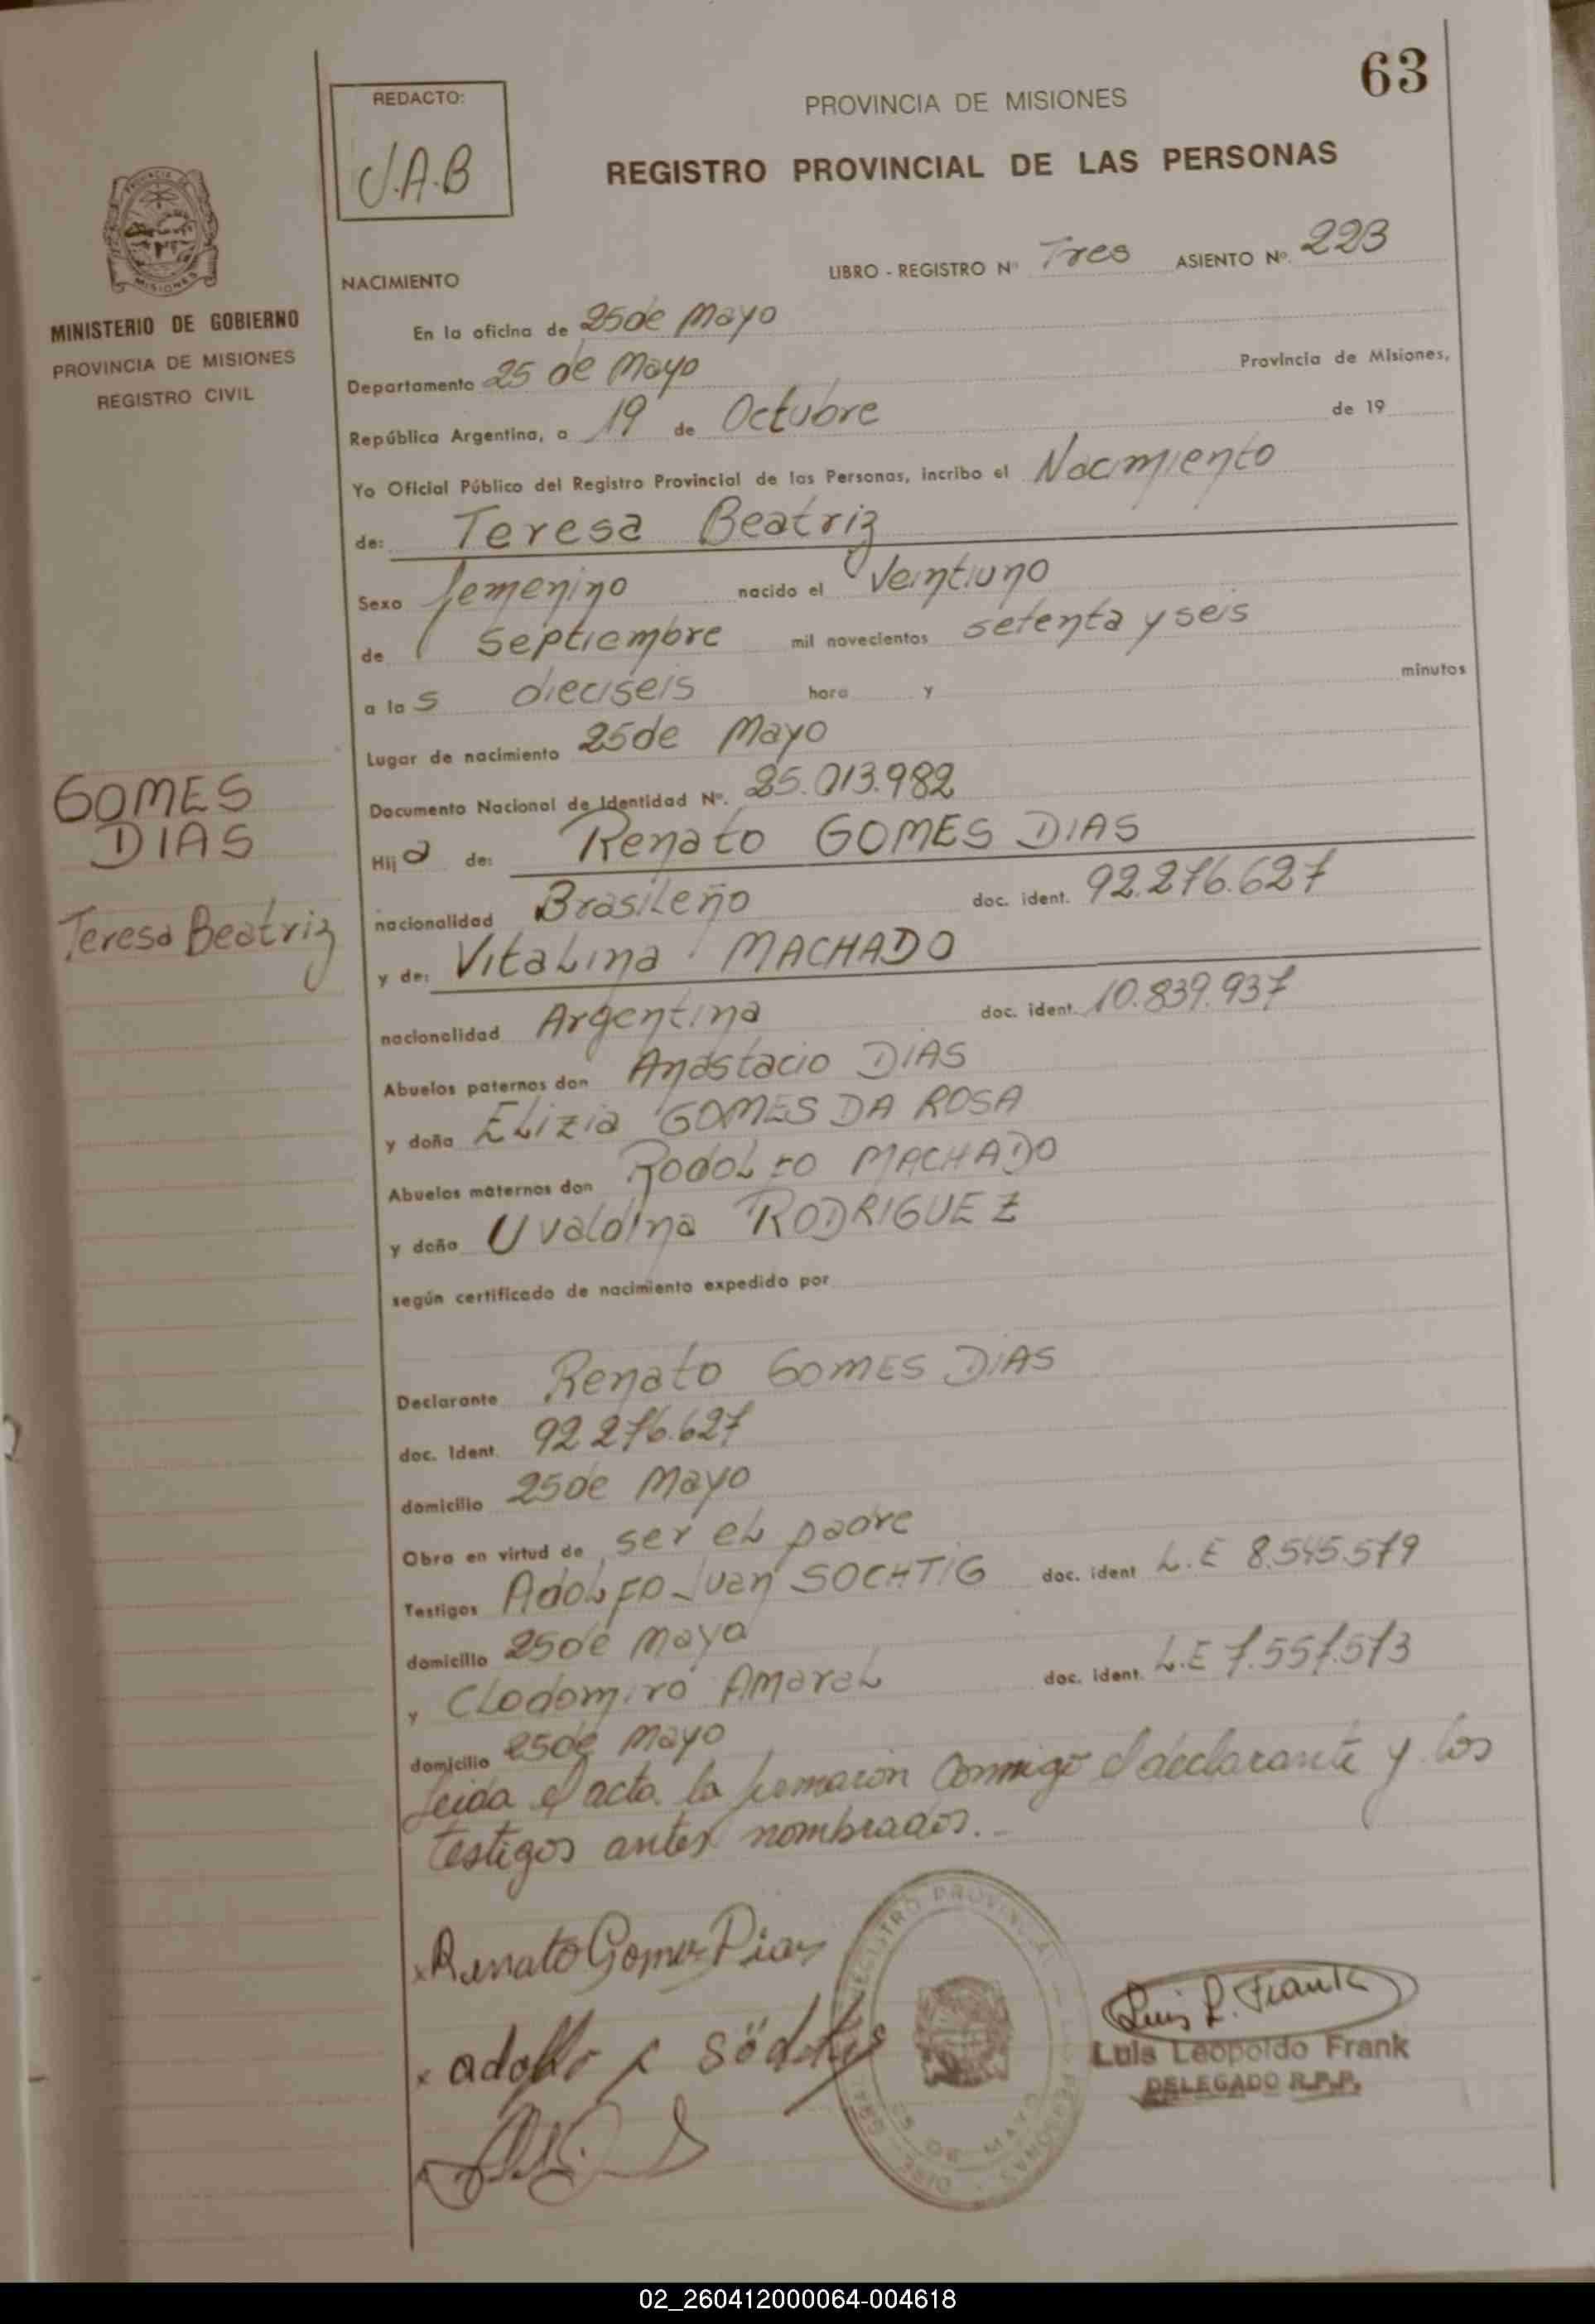 63
REDACTO:
J.A.B
PROVINCIA DE MISIONES
REGISTRO PROVINCIAL DE LAS PERSONAS
MINISTERIO DE GOBIERNO
PROVINCIA DE MISIONES
REGISTRO CIVIL
NACIMIENTO
LIBRO - REGISTRO Nº Tres ASIENTO Nº. 223
En la oficina de 25 de Mayo
Departamento 25 de Mayo Provincia de Misiones,
República Argentina, a 19 de Octubre de 19
Yo Oficial Público del Registro Provincial de las Personas, incribo el Nacimiento
de: Teresa Beatriz
Sexo femenino nacido el Veintiuno
de Septiembre mil novecientos setenta y seis
a las dieciseis hora y minutos
Lugar de nacimiento 25 de Mayo
Documento Nacional de Identidad Nº. 25.013.982
GOMES
DIAS
Teresa Beatriz
Hija de: Renato GOMES DIAS
nacionalidad Brasileño doc. ident. 92.276.627
y de: Vitalina MACHADO
nacionalidad Argentina doc. ident. 10.839.937
Abuelos paternos don Anastacio DIAS
y doña Elizia GOMES DA ROSA
Abuelos maternos don Rodolfo MACHADO
y doña Uvaldina RODRIGUEZ
según certificado de nacimiento expedido por
Declarante Renato GOMES DIAS
doc. Ident. 92 276.627
domicilio 25 de Mayo
Obra en virtud de ser el padre
Testigos Adolfo Juan SOCHTIG doc. ident L.E 8.545.579
domicilio 25 de Mayo
y Clodomiro Amaral doc. ident. L.E 7.557.573
domicilio 25 de Mayo
Leida el acta la firmaron conmigo el declarante y los
testigos antes nombrados.
x Renato Gomes Dias
x adolfo
REGISTRO PROVINCIAL DE LAS PERSONAS
25 DE MAYO
Luis L. Frank
Luis Leopoldo Frank
DELEGADO R.P.P.
02_260412000064-004618